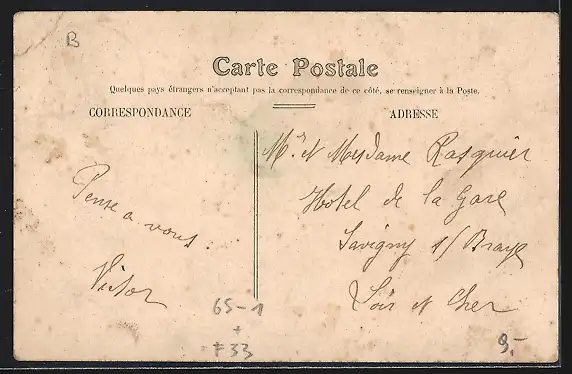 B
Carte Postale
Quelques pays étrangers n'acceptant pas la correspondance de ce côté, se renseigner à la Poste.
CORRESPONDANCE
ADRESSE
Pense a vous.
Victor
Mr et Madame Rasquier
Hotel de la Gare
Savigny s/ Braye
Loir et Cher
65-1
+
F33
9.-